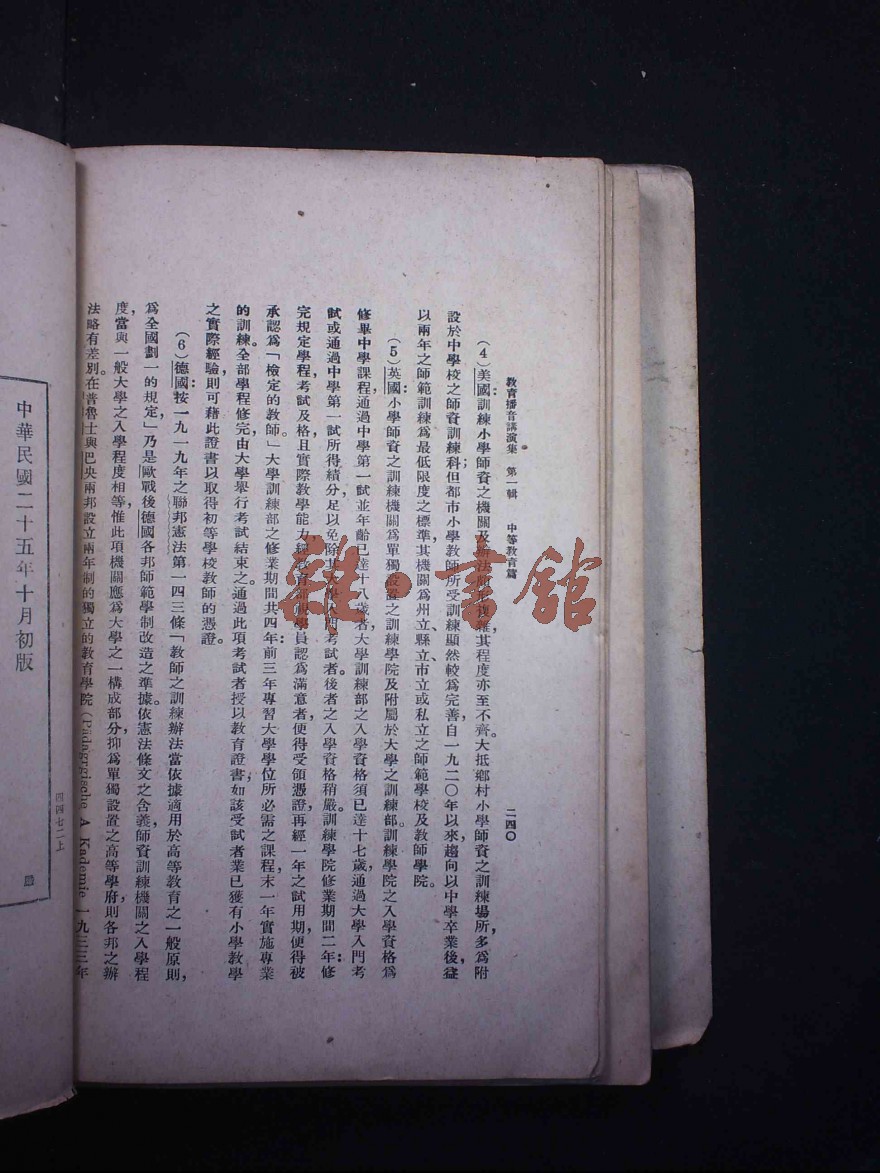 教育播音講演集　第一輯　中等教育篇　二四〇
（4）美國：訓練小學師資之機關及辦法情形複雜，其程度亦至不齊。大抵鄉村小學師資之訓練場所，多爲附
設於中學校之師資訓練科；但都市小學教師所受訓練顯然較爲完善，自一九二〇年以來，趨向以中學卒業後，益
以兩年之師範訓練爲最低限度之標準，其機關爲州立縣立、市立或私立之師範學校及教師學院。
（5）英國：小學師資之訓練機關爲單獨設置之訓練學院及附屬於大學之訓練部。訓練學院之入學資格爲
修畢中學課程，通過中學第一試並年齡已達十八歲者；大學訓練部之入學資格須已達十七歲，通過大學入門考
試或通過中學第一試所得績分，足以免除其大學入門考試者。後者之入學資格稍嚴。訓練學院修業期間二年：修
完規定學程，考試及格，且實際教學能力，經教育部視學員認爲滿意者，便得受領憑證，再經一年之試用期，便得被
承認爲「檢定的教師」。大學訓練部之修業期間共四年：前三年專習大學學位所必需之課程，末一年實施專業
的訓練。全部學程修完，由大學舉行考試結束之。通過此項考試者授以教育證書；如該受試者業已獲有小學教學
之實際經驗，則可藉此證書以取得初等學校教師的憑證。
（6）德國：按一九一九年之聯邦憲法第一四三條「教師之訓練辦法當依據適用於高等教育之一般原則，
爲全國劃一的規定」，乃是歐戰後德國各邦師範學制改造之準據。依憲法條文之含義，師資訓練機關之入學程
度，當與一般大學之入學程度相等，惟此項機關應爲大學之一構成部分，抑爲單獨設置之高等學府，則各邦之辦
法略有差別。在普魯士與巴央兩邦設立兩年制的獨立的教育學院（Pädagogische A Kademie 一九三三年
中華民國二十五年十月初版
四四七二上